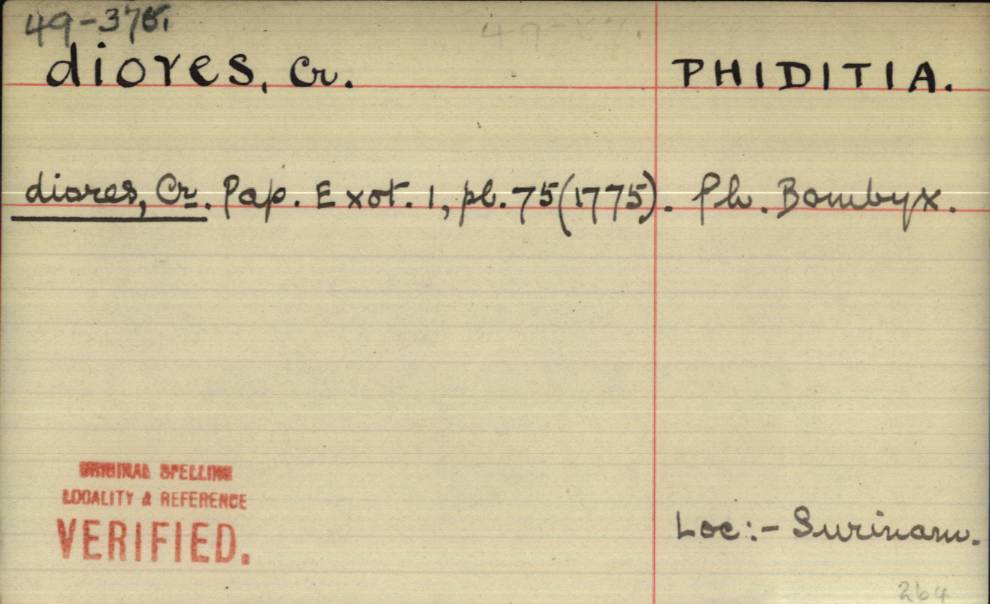 49-376.
diores, Cr. PHIDITIA.
diores, Cr. Pap. Exot. 1, pl. 75 (1775). Ph. Bombyx.
ORIGINAL SPELLING
LOCALITY & REFERENCE
VERIFIED.
Loc:- Surinam.
264